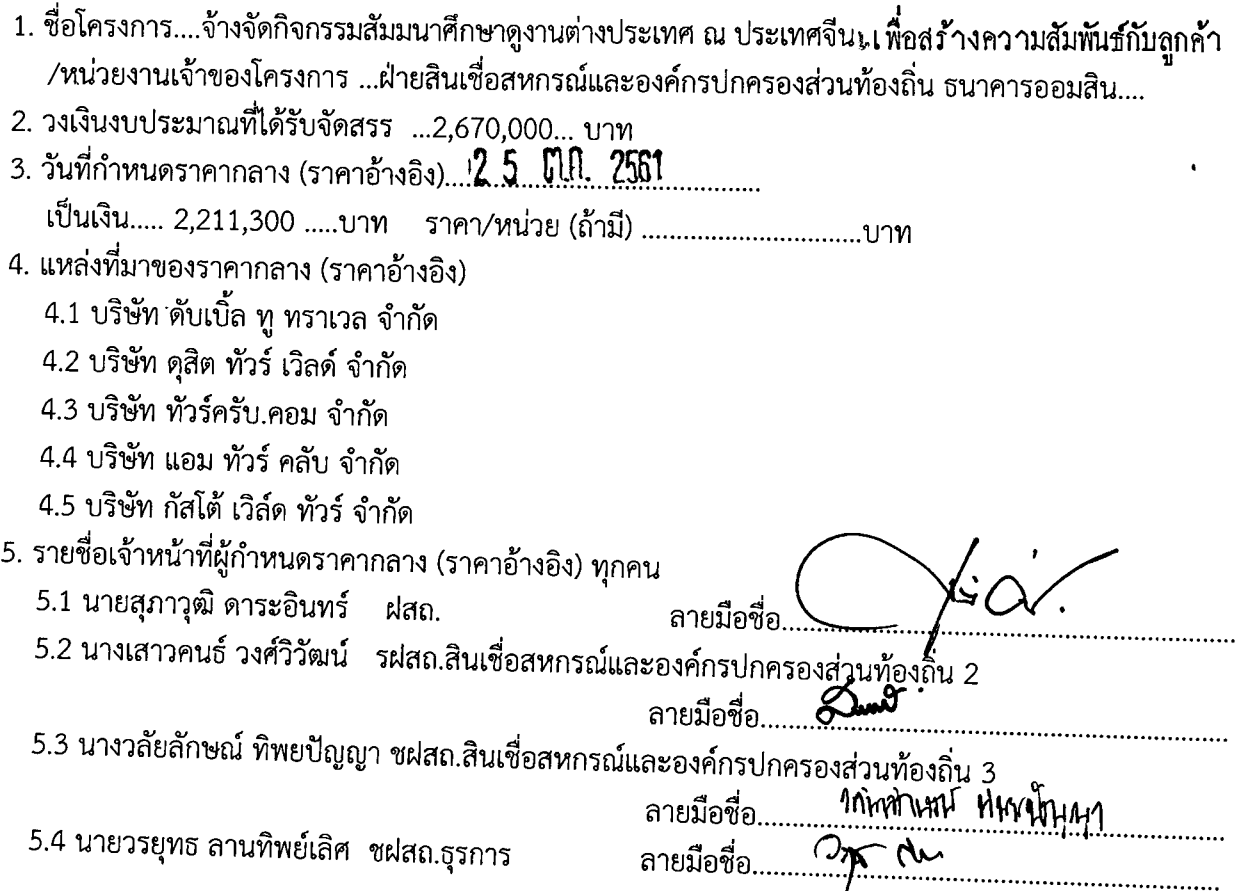 1. ชื่อโครงการ....จ้างจัดกิจกรรมสัมมนาศึกษาดูงานต่างประเทศ ณ ประเทศจีน เพื่อสร้างความสัมพันธ์กับลูกค้า
/หน่วยงานเจ้าของโครงการ ...ฝ่ายสินเชื่อสหกรณ์และองค์กรปกครองส่วนท้องถิ่น ธนาคารออมสิน....
2. วงเงินงบประมาณที่ได้รับจัดสรร ...2,670,000... บาท
3. วันที่กำหนดราคากลาง (ราคาอ้างอิง)....25 ต.ค. 2561....................
เป็นเงิน..... 2,211,300 .....บาท ราคา/หน่วย (ถ้ามี) ..............................บาท
4. แหล่งที่มาของราคากลาง (ราคาอ้างอิง)
4.1 บริษัท ดับเบิ้ล ทู ทราเวล จำกัด
4.2 บริษัท ดุสิต ทัวร์ เวิลด์ จำกัด
4.3 บริษัท ทัวร์ครับ.คอม จำกัด
4.4 บริษัท แอม ทัวร์ คลับ จำกัด
4.5 บริษัท กัสโต้ เวิล์ด ทัวร์ จำกัด
5. รายชื่อเจ้าหน้าที่ผู้กำหนดราคากลาง (ราคาอ้างอิง) ทุกคน
5.1 นายสุภาวุฒิ ดาระอินทร์ ฝสถ. ลายมือชื่อ............................................................
5.2 นางเสาวคนธ์ วงศ์วิวัฒน์ รฝสถ.สินเชื่อสหกรณ์และองค์กรปกครองส่วนท้องถิ่น 2
ลายมือชื่อ............................................................
5.3 นางวลัยลักษณ์ ทิพยปัญญา ชฝสถ.สินเชื่อสหกรณ์และองค์กรปกครองส่วนท้องถิ่น 3
ลายมือชื่อ............................................................
5.4 นายวรยุทธ ลานทิพย์เลิศ ชฝสถ.ธุรการ ลายมือชื่อ............................................................